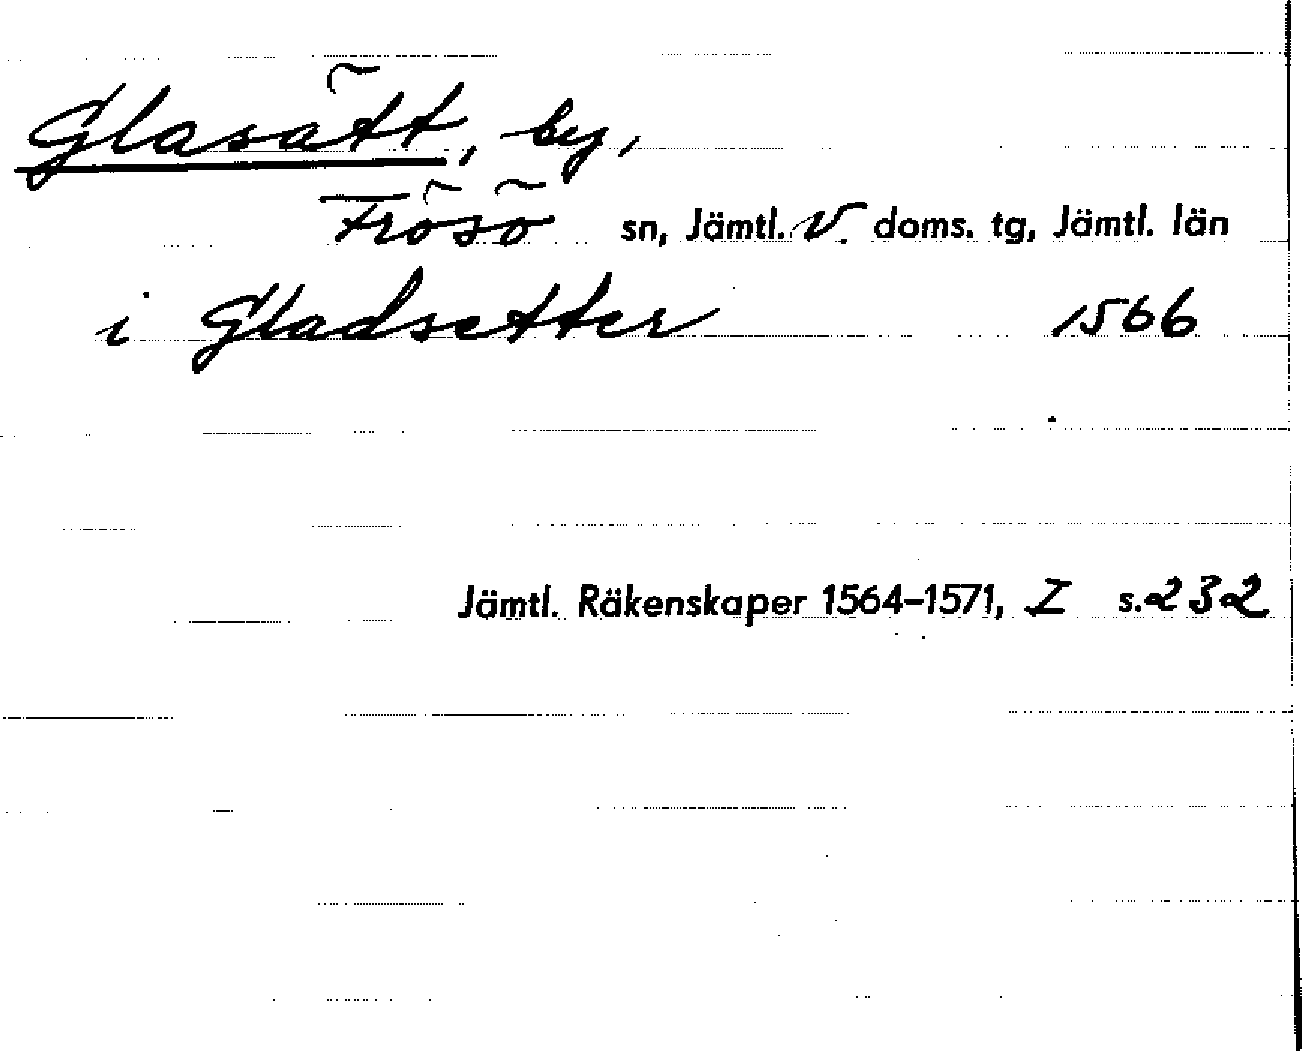 Glasätt, by,
Frösö sn, Jämtl. V. doms. tg, Jämtl. län
i Gladsetter 1566
Jämtl. Räkenskaper 1564–1571, I s. 232